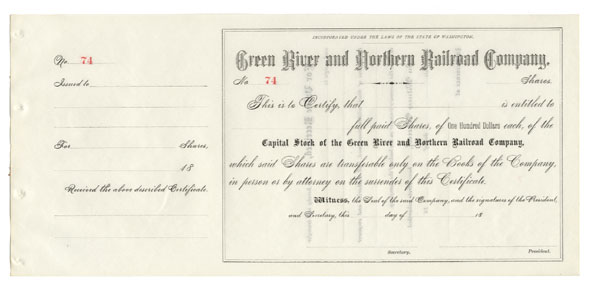 No. 74
Issued to
For Shares,
18
Received the above described Certificate.
INCORPORATED UNDER THE LAWS OF THE STATE OF WASHINGTON.
Green River and Northern Railroad Company.
No 74 Shares.
This is to Certify, that is entitled to
full paid Shares, of One Hundred Dollars each, of the
Capital Stock of the Green River and Northern Railroad Company,
which said Shares are transferable only on the Books of the Company,
in person or by attorney on the surrender of this Certificate.
Witness, the Seal of the said Company, and the signatures of the President,
and Secretary, this day of 18
Secretary. President.